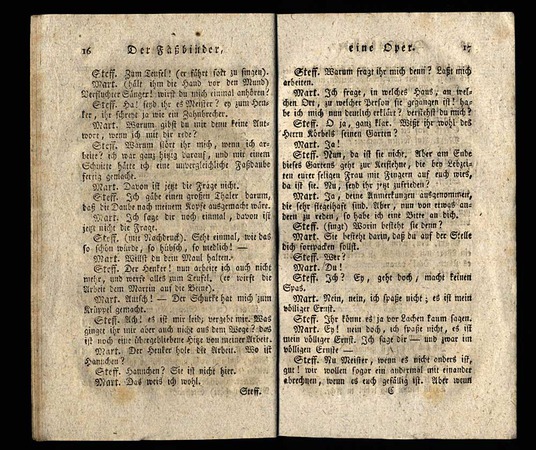 16 Der Faßbinder,
Steff. Zum Teufel! (er fährt fort zu singen).
Mart. (hält ihm die Hand vor den Mund)
Verfluchter Sänger! wirst du mich einmal anhören?
Steff. Ha! seyd ihr es Meister? ey zum Hen-
ker, ihr schreyt ja wie ein Zahnbrecher.
Mart. Warum gibst du mir denn keine Ant-
wort, wenn ich mit dir rede?
Steff. Warum stört ihr mich, wenn ich ar-
beite? ich war ganz hitzig darauf, und mit einem
Schnitte hätte ich eine unvergleichliche Faßdaube
fertig gemacht.
Mart. Davon ist jetzt die Frage nicht.
Steff. Ich gäbe einen großen Thaler darum,
daß die Daube nach meinem Kopfe ausgemacht wäre.
Mart. Ich sage dir noch einmal, davon ist
jetzt nicht die Frage.
Steff. (mit Nachdruck). Seht einmal, wie das
so schön würde, so hübsch, so niedlich! —
Mart. Willst du dein Maul halten.
Steff. Der Henker! nun arbeite ich auch nicht
mehr, und werfe alles zum Teufel. (er wirft die
Arbeit dem Martin auf die Beine).
Mart. Autsch! — Der Schurke hat mich zum
Krüppel gemacht.
Steff. Ach! es ist mir leid; vergebe mir. Was
gienget ihr mir aber auch nicht aus dem Wege? das
ist noch eine übergebliebene Hitze von meiner Arbeit.
Mart. Der Henker hole die Arbeit. Wo ist
Hannchen?
Steff. Hannchen? Sie ist nicht hier.
Mart. Das weis ich wohl.
Steff.
eine Oper. 17
Steff. Warum fragt ihr mich denn? Laßt mich
arbeiten.
Mart. Ich frage, in welches Haus, an wel-
chen Ort, zu welcher Person sie gegangen ist? ha-
be ich mich nun deutlich erklärt? verstehst du mich?
Steff. O ja, ganz klar. Wißt ihr wohl des
Herrn Körbels seinen Garten?
Mart. Ja!
Steff. Nun, da ist sie nicht. Aber am Ende
dieses Gartens geht zur Kirsche, die bey Lebzei-
ten eure seligen Frau mit Fingern auf euch wies,
da ist sie. Nu, seyd ihr jetzt zufrieden?
Mart. Ja, deine Anmerkungen ausgenommen,
die sehr fehlhaft sind. Aber nun von etwas an-
dern zu reden, so habe ich eine Bitte an dich.
Steff. (singt) Worin besteht sie denn?
Mart. Sie besteht darin, daß du auf der Stelle
dich fortpacken sollst.
Steff. Wer?
Mart. Du!
Steff. Ich? Ey, geht doch, macht keinen
Spas.
Mart. Nein, nein, ich spaße nicht; es ist mein
völliger Ernst.
Steff. Ihr könne es ja vor Lachen kaum sagen.
Mart. Ey! nein doch, ich spaße nicht, es ist
mein völliger Ernst. Ich sage dir — und zwar im
völligen Ernste —
Steff. Nu Meister, wenn es nicht anders ist,
gut! wir wollen sogar ein andermal mit einander
abrechnen, wenn es euch gefällig ist. Aber wenn
C